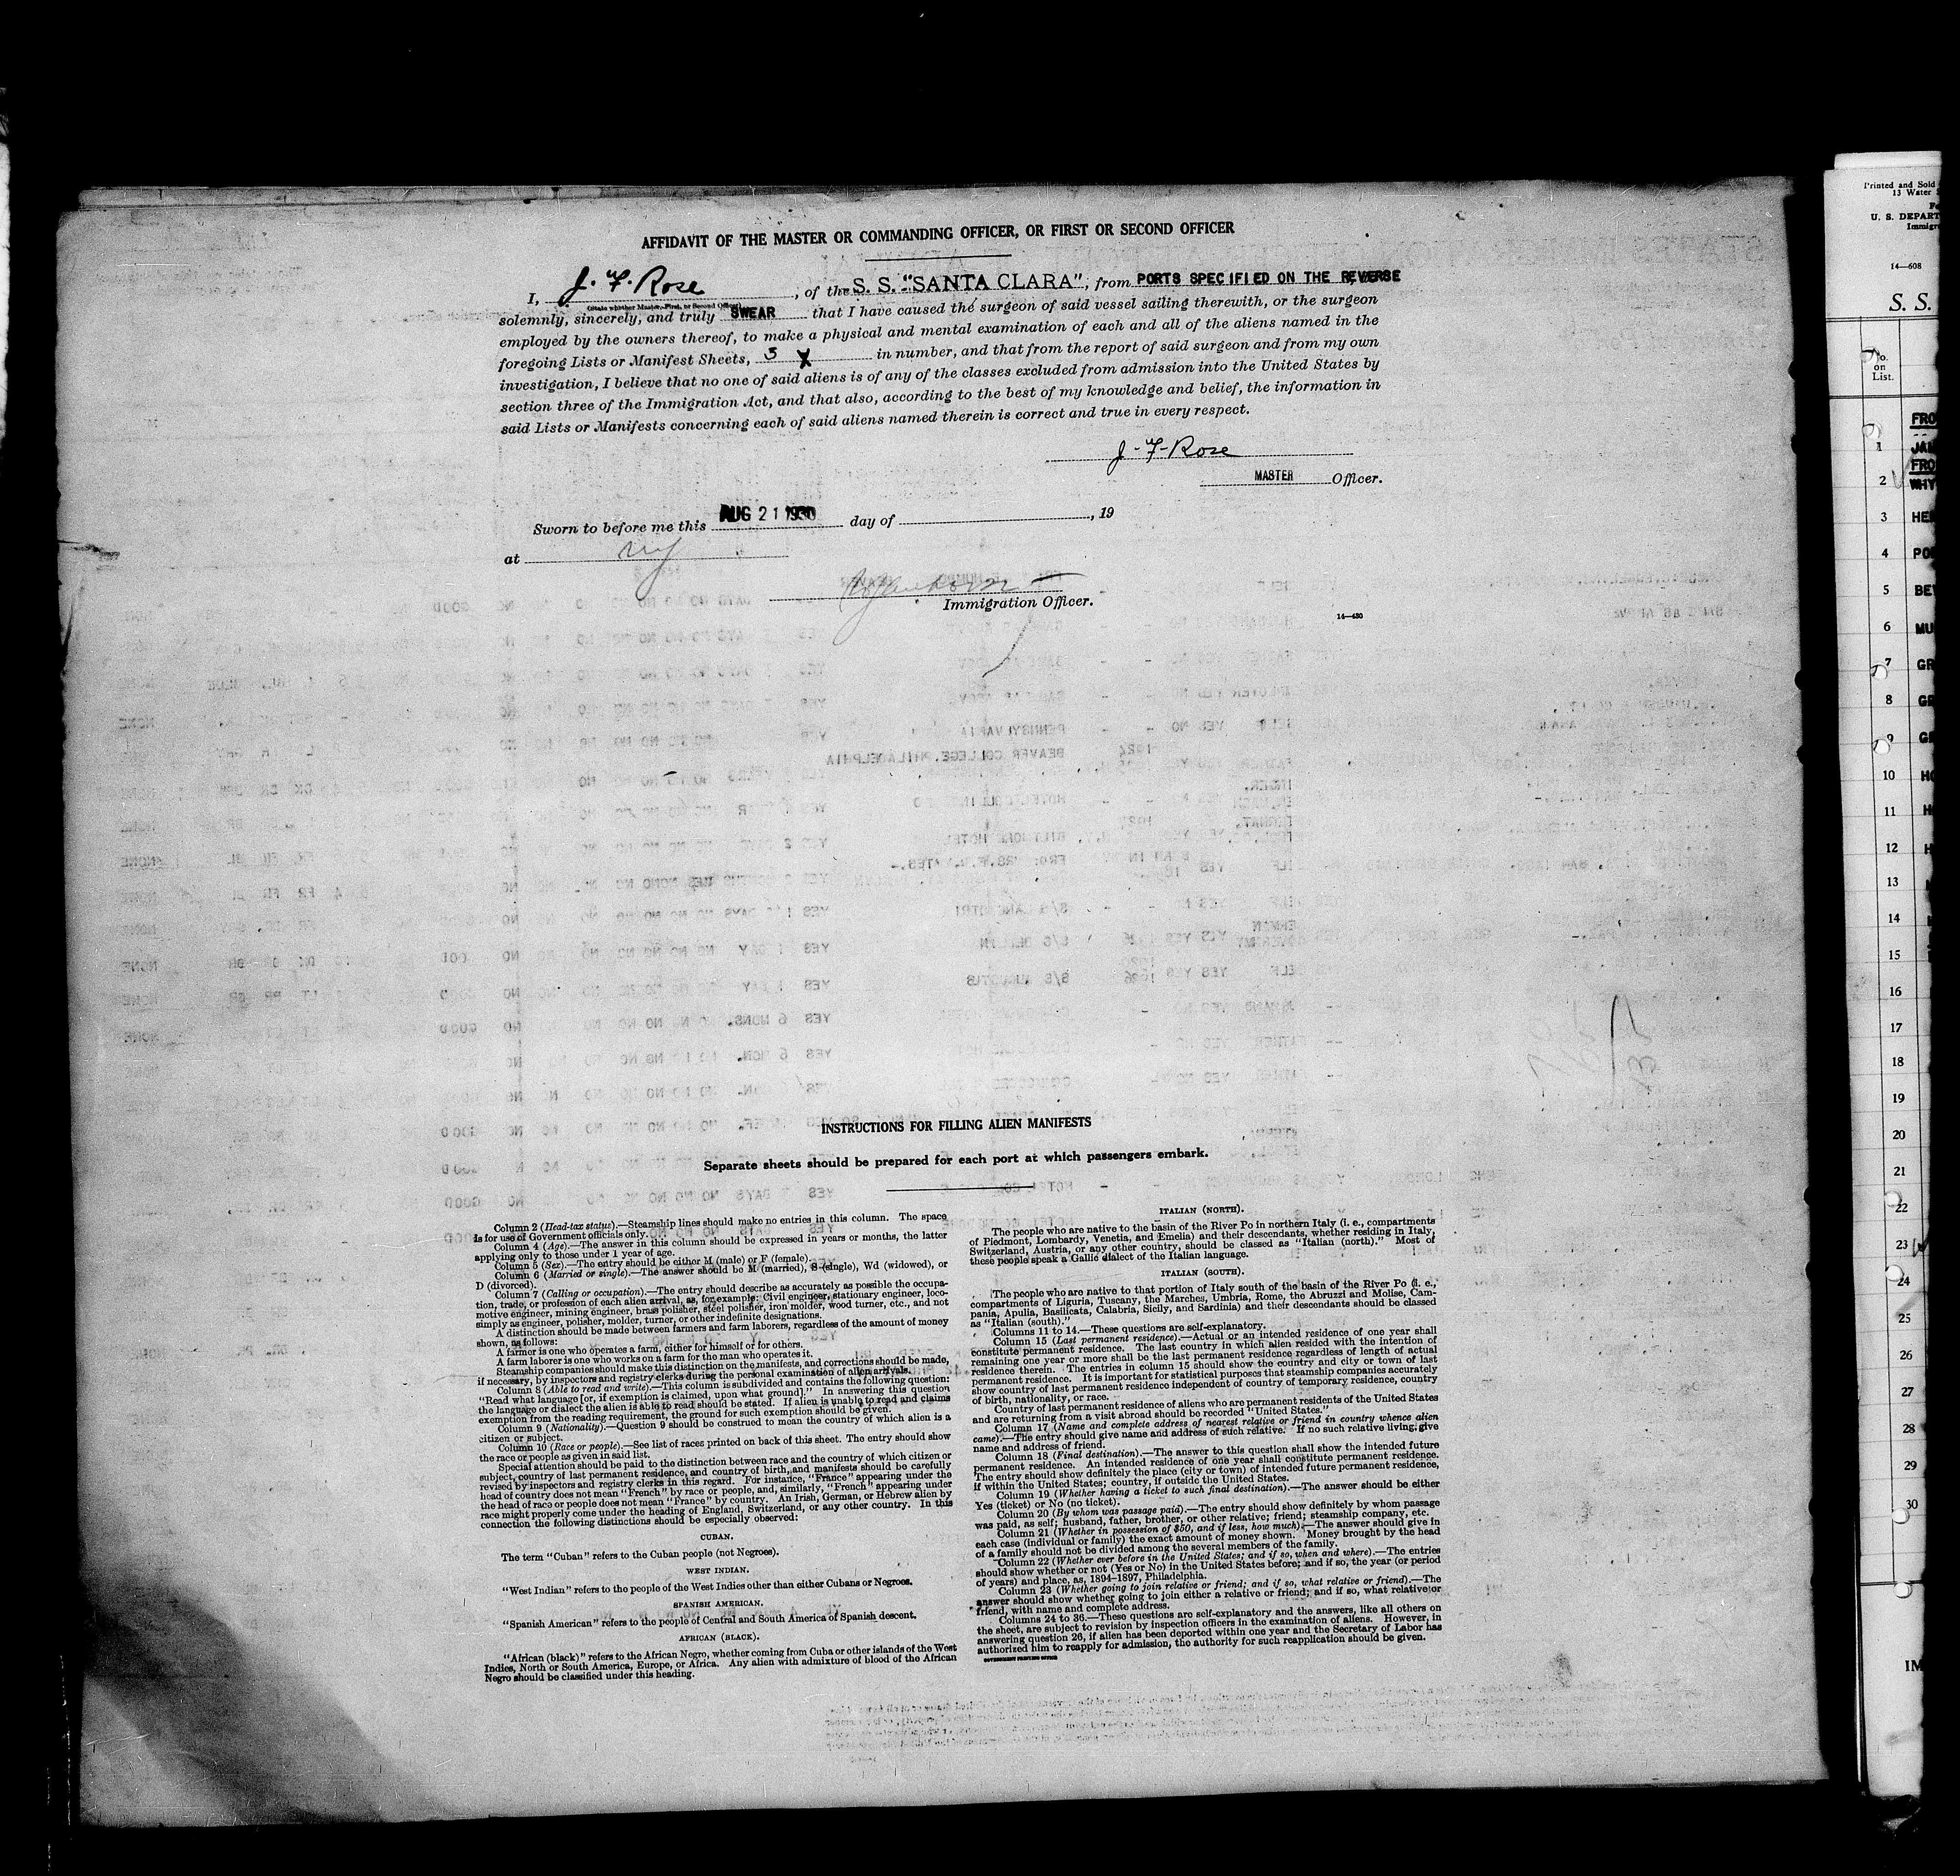 AFFIDAVIT OF THE MASTER OR COMMANDING OFFICER, OR FIRST OR SECOND OFFICER
I, J. F. Rose, of the S. S. "SANTA CLARA", from PORTS SPECIFIED ON THE REVERSE
(State whether Master, First, or Second Officer)
solemnly, sincerely, and truly SWEAR that I have caused the surgeon of said vessel sailing therewith, or the surgeon
employed by the owners thereof, to make a physical and mental examination of each and all of the aliens named in the
foregoing Lists or Manifest Sheets, 3 X in number, and that from the report of said surgeon and from my own
investigation, I believe that no one of said aliens is of any of the classes excluded from admission into the United States by
section three of the Immigration Act, and that also, according to the best of my knowledge and belief, the information in
said Lists or Manifests concerning each of said aliens named therein is correct and true in every respect.
J. F. Rose
MASTER Officer.
Sworn to before me this AUG 21 1930 day of , 19
at NY
Immigration Officer.
14—430
INSTRUCTIONS FOR FILLING ALIEN MANIFESTS
Separate sheets should be prepared for each port at which passengers embark.
Column 2 (Head-tax status).—Steamship lines should make no entries in this column. The space
is for use of Government officials only.
Column 4 (Age).—The answer in this column should be expressed in years or months, the latter
applying only to those under 1 year of age.
Column 5 (Sex).—The entry should be either M (male) or F (female).
Column 6 (Married or single).—The answer should be M (married), S (single), Wd (widowed), or
D (divorced).
Column 7 (Calling or occupation).—The entry should describe as accurately as possible the occupa-
tion, trade, or profession of each alien arrival, as, for example: Civil engineer, stationary engineer, loco-
motive engineer, mining engineer, brass polisher, steel polisher, iron molder, wood turner, etc., and not
simply as engineer, polisher, molder, turner, or other indefinite designations.
A distinction should be made between farmers and farm laborers, regardless of the amount of money
shown, as follows:
A farmer is one who operates a farm, either for himself or for others.
A farm laborer is one who works on a farm for the man who operates it.
Steamship companies should make this distinction on the manifests, and corrections should be made,
if necessary, by inspectors and registry clerks during the personal examination of alien arrivals.
Column 8 (Able to read and write).—This column is subdivided and contains the following question:
"Read what language [or, if exemption is claimed, upon what ground]." In answering this question
the language or dialect the alien is able to read should be stated. If alien is unable to read and claims
exemption from the reading requirement, the ground for such exemption should be given.
Column 9 (Nationality).—Question 9 should be construed to mean the country of which alien is a
citizen or subject.
Column 10 (Race or people).—See list of races printed on back of this sheet. The entry should show
the race or people as given in said list.
Special attention should be paid to the distinction between race and the country of which citizen or
subject, country of last permanent residence, and country of birth, and manifests should be carefully
revised by inspectors and registry clerks in this regard. For instance, "France" appearing under the
head of country does not mean "French" by race or people, and, similarly, "French" appearing under
the head of race or people does not mean "France" by country. An Irish, German, or Hebrew alien by
race might properly come under the heading of England, Switzerland, or any other country. In this
connection the following distinctions should be especially observed:
CUBAN.
The term "Cuban" refers to the Cuban people (not Negroes).
WEST INDIAN.
"West Indian" refers to the people of the West Indies other than either Cubans or Negroes.
SPANISH AMERICAN.
"Spanish American" refers to the people of Central and South America of Spanish descent.
AFRICAN (BLACK).
"African (black)" refers to the African Negro, whether coming from Cuba or other islands of the West
Indies, North or South America, Europe, or Africa. Any alien with admixture of blood of the African
Negro should be classified under this heading.
ITALIAN (NORTH).
The people who are native to the basin of the River Po in northern Italy (i. e., compartments
of Piedmont, Lombardy, Venetia, and Emelia) and their descendants, whether residing in Italy,
Switzerland, Austria, or any other country, should be classed as "Italian (north)." Most of
these people speak a Gallic dialect of the Italian language.
ITALIAN (SOUTH).
The people who are native to that portion of Italy south of the basin of the River Po (i. e.,
compartments of Liguria, Tuscany, the Marches, Umbria, Rome, the Abruzzi and Molise, Cam-
pania, Apulia, Basilicata, Calabria, Sicily, and Sardinia) and their descendants should be classed
as "Italian (south)."
Columns 11 to 14.—These questions are self-explanatory.
Column 15 (Last permanent residence).—Actual or an intended residence of one year shall
constitute permanent residence. The last country in which alien resided with the intention of
remaining one year or more shall be the last permanent residence regardless of length of actual
residence therein. The entries in column 15 should show the country and city or town of last
permanent residence. It is important for statistical purposes that steamship companies accurately
show country of last permanent residence independent of country of temporary residence, country
of birth, nationality, or race.
Country of last permanent residence of aliens who are permanent residents of the United States
and are returning from a visit abroad should be recorded "United States."
Column 17 (Name and complete address of nearest relative or friend in country whence alien
came).—The entry should give name and address of such relative. If no such relative living, give
name and address of friend.
Column 18 (Final destination).—The answer to this question shall show the intended future
permanent residence. An intended residence of one year shall constitute permanent residence.
The entry should show definitely the place (city or town) of intended future permanent residence,
if within the United States; country, if outside the United States.
Column 19 (Whether having a ticket to such final destination).—The answer should be either
Yes (ticket) or No (no ticket).
Column 20 (By whom was passage paid).—The entry should show definitely by whom passage
was paid, as self; husband, father, brother, or other relative; friend; steamship company, etc.
Column 21 (Whether in possession of $50, and if less, how much).—The answer should give in
each case (individual or family) the exact amount of money shown. Money brought by the head
of a family should not be divided among the several members of the family.
Column 22 (Whether ever before in the United States; and if so, when and where).—The entries
should show whether or not (Yes or No) in the United States before; and if so, the year (or period
of years) and place, as, 1894-1897, Philadelphia.
Column 23 (Whether going to join relative or friend; and if so, what relative or friend).—The
answer should show whether going to join either a relative or friend; and if so, what relative or
friend, with name and complete address.
Columns 24 to 36.—These questions are self-explanatory and the answers, like all others on
the sheet, are subject to revision by inspection officers in the examination of aliens. However, in
answering question 26, if alien has been deported within one year and the Secretary of Labor has
authorized him to reapply for admission, the authority for such reapplication should be given.
GOVERNMENT PRINTING OFFICE
Printed and Sold
13 Water
U. S. DEPART
Immigr
14—608
S. S.
No.
on
List.
FRO
1 JAM
FRO
2 WHY
3 HE
4 PO
5 BE
6 MU
7 GR
8 GR
9 GR
10 HO
11 H
12 H
13
14
15
16
17
18
19
20
21
22
23
24
25
26
27
28
29
30
IM